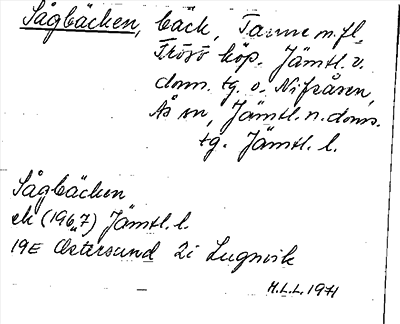 Sågbäcken, bäck, Tanne m.fl.
Frösö köp. Jämtl. v.
doms. tg. o. Nifsåsen,
Ås sn, Jämtl. n. doms.
tg. Jämtl. l.
Sågbäcken
ek (1967) Jämtl. l.
19E Östersund 2i Lugnvik
H.L.L. 1971